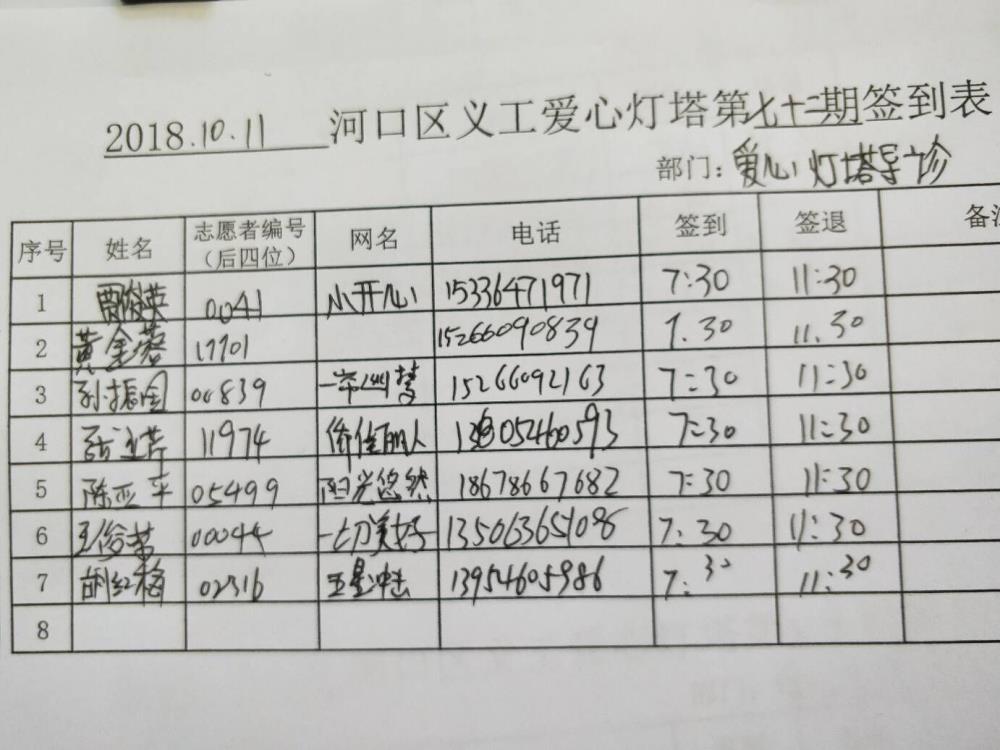 2018.10.11 河口区义工爱心灯塔第七十二期签到表
部门：爱心灯塔导诊
序号 姓名 志愿者编号（后四位） 网名 电话 签到 签退
1 贾俊英 0041 小开心 15336471971 7:30 11:30
2 黄金 17701 15266090839 7.30 11.30
3 孙振国 00839 15266092163 7:30 11:30
4 11974 俏佳丽人 13805460593 7:30 11:30
5 陈亚平 05499 阳光悠然 18678667682 7:30 11:30
6 王俊英 00044 一切美好 13506365108 7:30 11:30
7 胡红梅 02316 五星冲击 13954605986 7:30 11:30
8